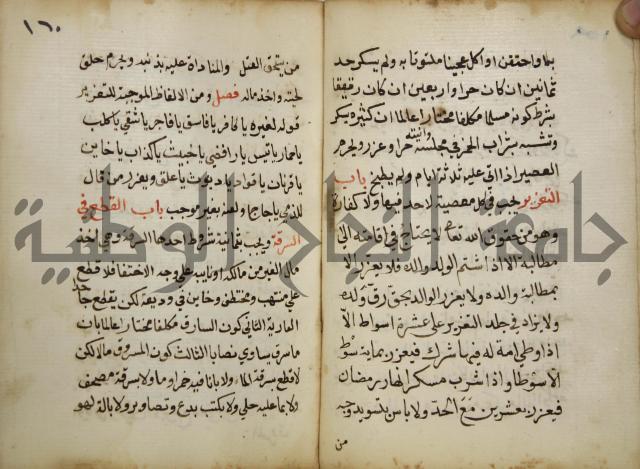 بماء واحتقن او اكل عجينا ملتوتا به ولم يسكر حد
ثمانين ان كان حرا واربعين ان كان رقيقا
بشرط كونه مسلما مكلفا مختارا عالما ان كثيره يسكر
وتشبه بشراب الخمر في مجلسه وانيته حرم وعزر ويحرم
العصير اذا اتى عليه ثلاثة ايام ولم يطبخ باب
التعزير يجب في كل معصية لا حد فيها ولا كفارة
وهو من حقوق الله تعالى لا يحتاج في اقامته الى
مطالبة الا اذا شتم الولد والده فلا يعزر الا
بمطالبة والده ولا يعزر الوالد بحق ولده
ولا يزاد في جلد التعزير على عشرة اسواط الا
اذا وطئ امة له فيها شرك فيعزر بماية سوط
الا سوطا واذا شرب مسكرا نهار رمضان
فيعزر بعشرين مع الحد ولا باس بتسويد وجه
من
١٦٠
من يستحق والمناداة عليه بذنبه ويحرم حلق
لحيته واخذ ماله فصل ومن الالفاظ الموجبة للتعزير
قوله لغيره يا كافر يا فاسق يا فاجر يا شقي يا كلب
يا حمار يا تيس يا رافضي يا خبيث يا كذاب يا خاين
يا قرنان يا قواد يا ديوث يا علق ويعزر من قال
للذمي يا حاج ولعنه بغير موجب باب القطع في
السرقة ويجب بثمانية شروط احدها السرقة وهي اخذ
مال الغير من مالكه او نايبه على وجه الاختفا فلا قطع
على منتهب ومختطف وخاين في وديعة لكن يقطع جاحد
العارية الثاني كون السارق مكلفا مختارا عالما بان
ما سرقه يساوي نصابا الثالث كون المسروق مالا لكن
لا قطع بسرقة الماء ولا باناء فيه خمر او ماء ولا بسرقة مصحف
ولا بما عليه حلي ولا بكتب بدع وتصاوير ولا بالة لهو
جامعة النجاح الوطنية